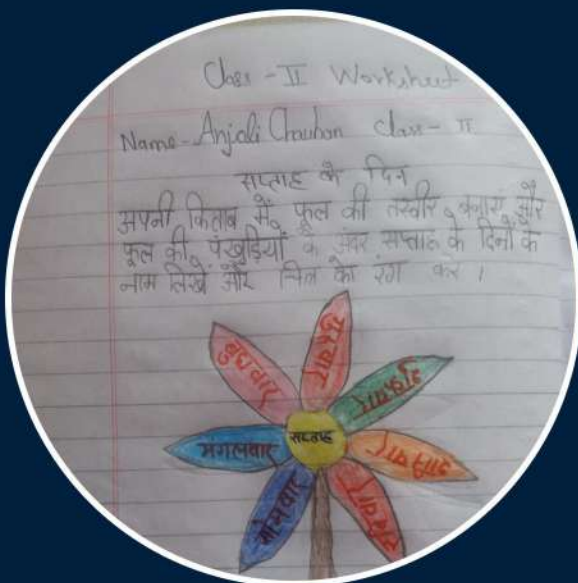 Class - II Worksheet
Name- Anjali Chauhan Class- II
सप्ताह के दिन
अपनी किताब में फूल की तस्वीर बनाए और
फूल की पंखुड़ियों के अंदर सप्ताह के दिनों के
नाम लिखें और चित्र को रंग करे ।
सप्ताह
सोमवार
मंगलवार
बुधवार